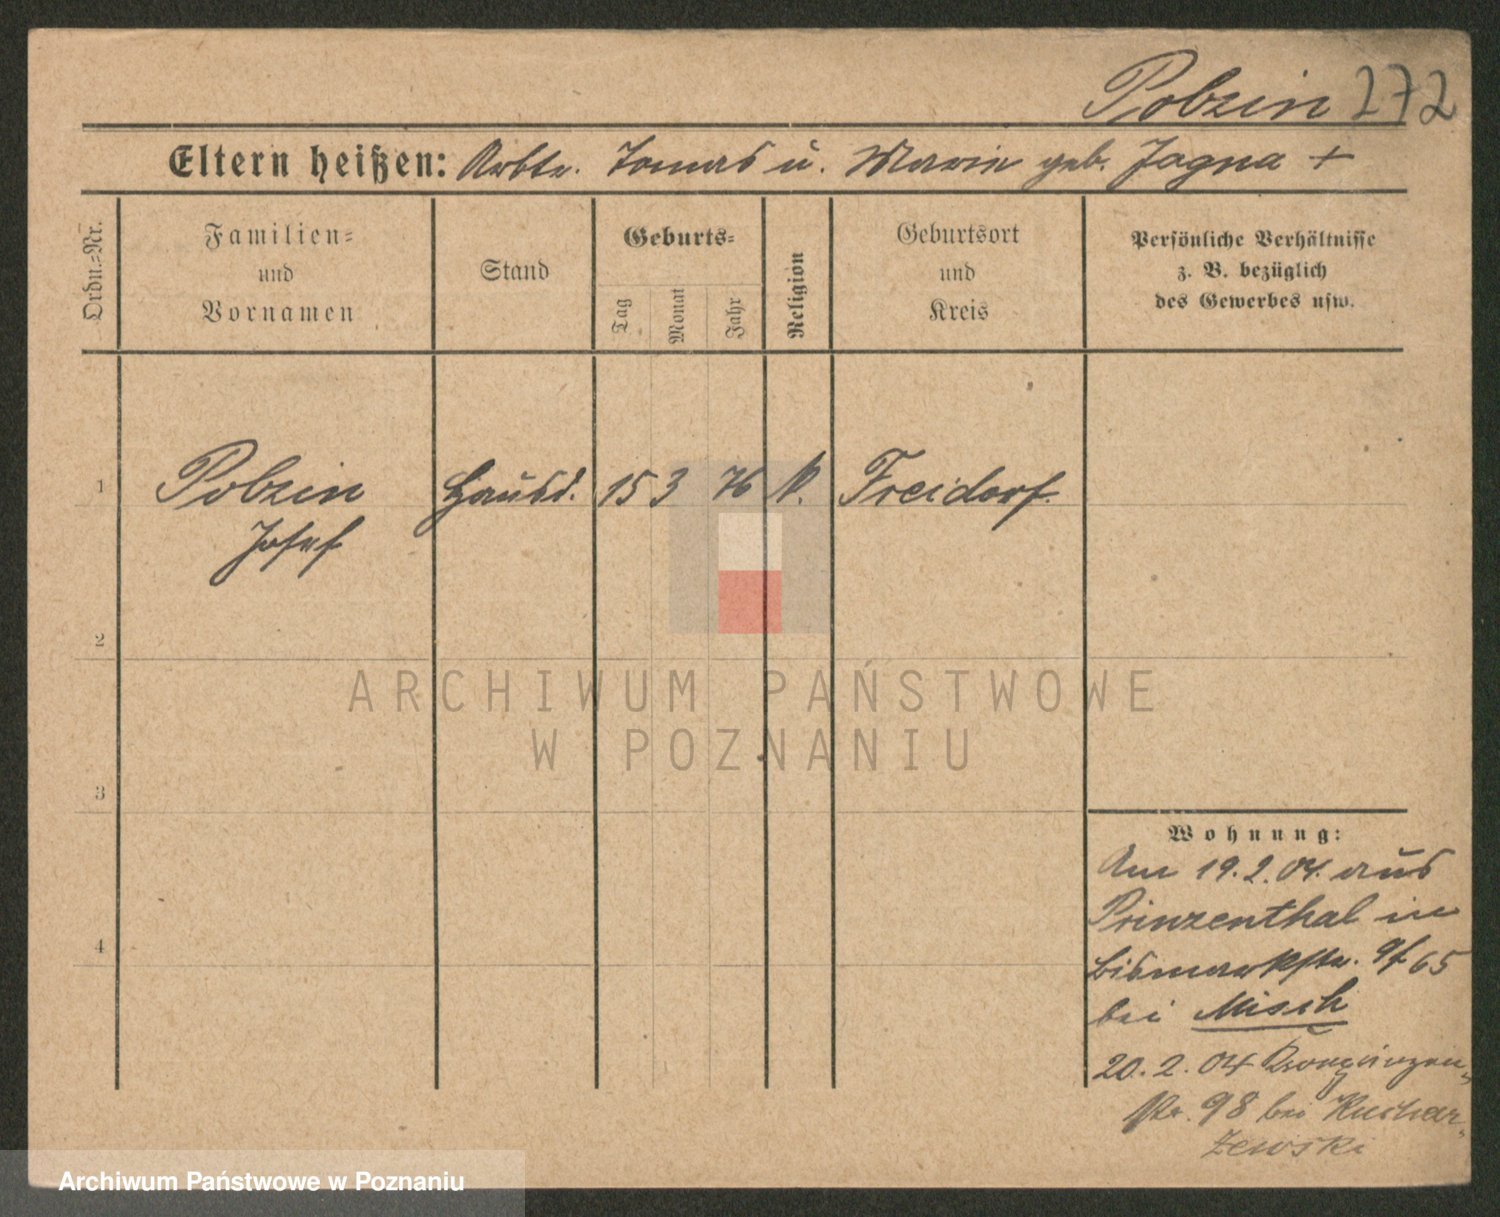 Pobzin 272
Eltern heißen: Arbtr. Tomas u. Marie geb. Jagna +
Ordn.-Nr.
Familien-
und
Vornamen
Stand
Geburts-
Tag
Monat
Jahr
Religion
Geburtsort
und
Kreis
Persönliche Verhältnisse
z. B. bezüglich
des Gewerbes usw.
1 Pobzin Hausd. 15 3 76 k. Freidorf.
Josef
2
3
4
Wohnung:
Am 19.2.04. aus
Prinzenthal in
Bismarkstr. 65
bei Misch
20.2.04 Kronprinzen-
str. 98 bei Kuchar-
zewski
ARCHIWUM PAŃSTWOWE
W POZNANIU
Archiwum Państwowe w Poznaniu